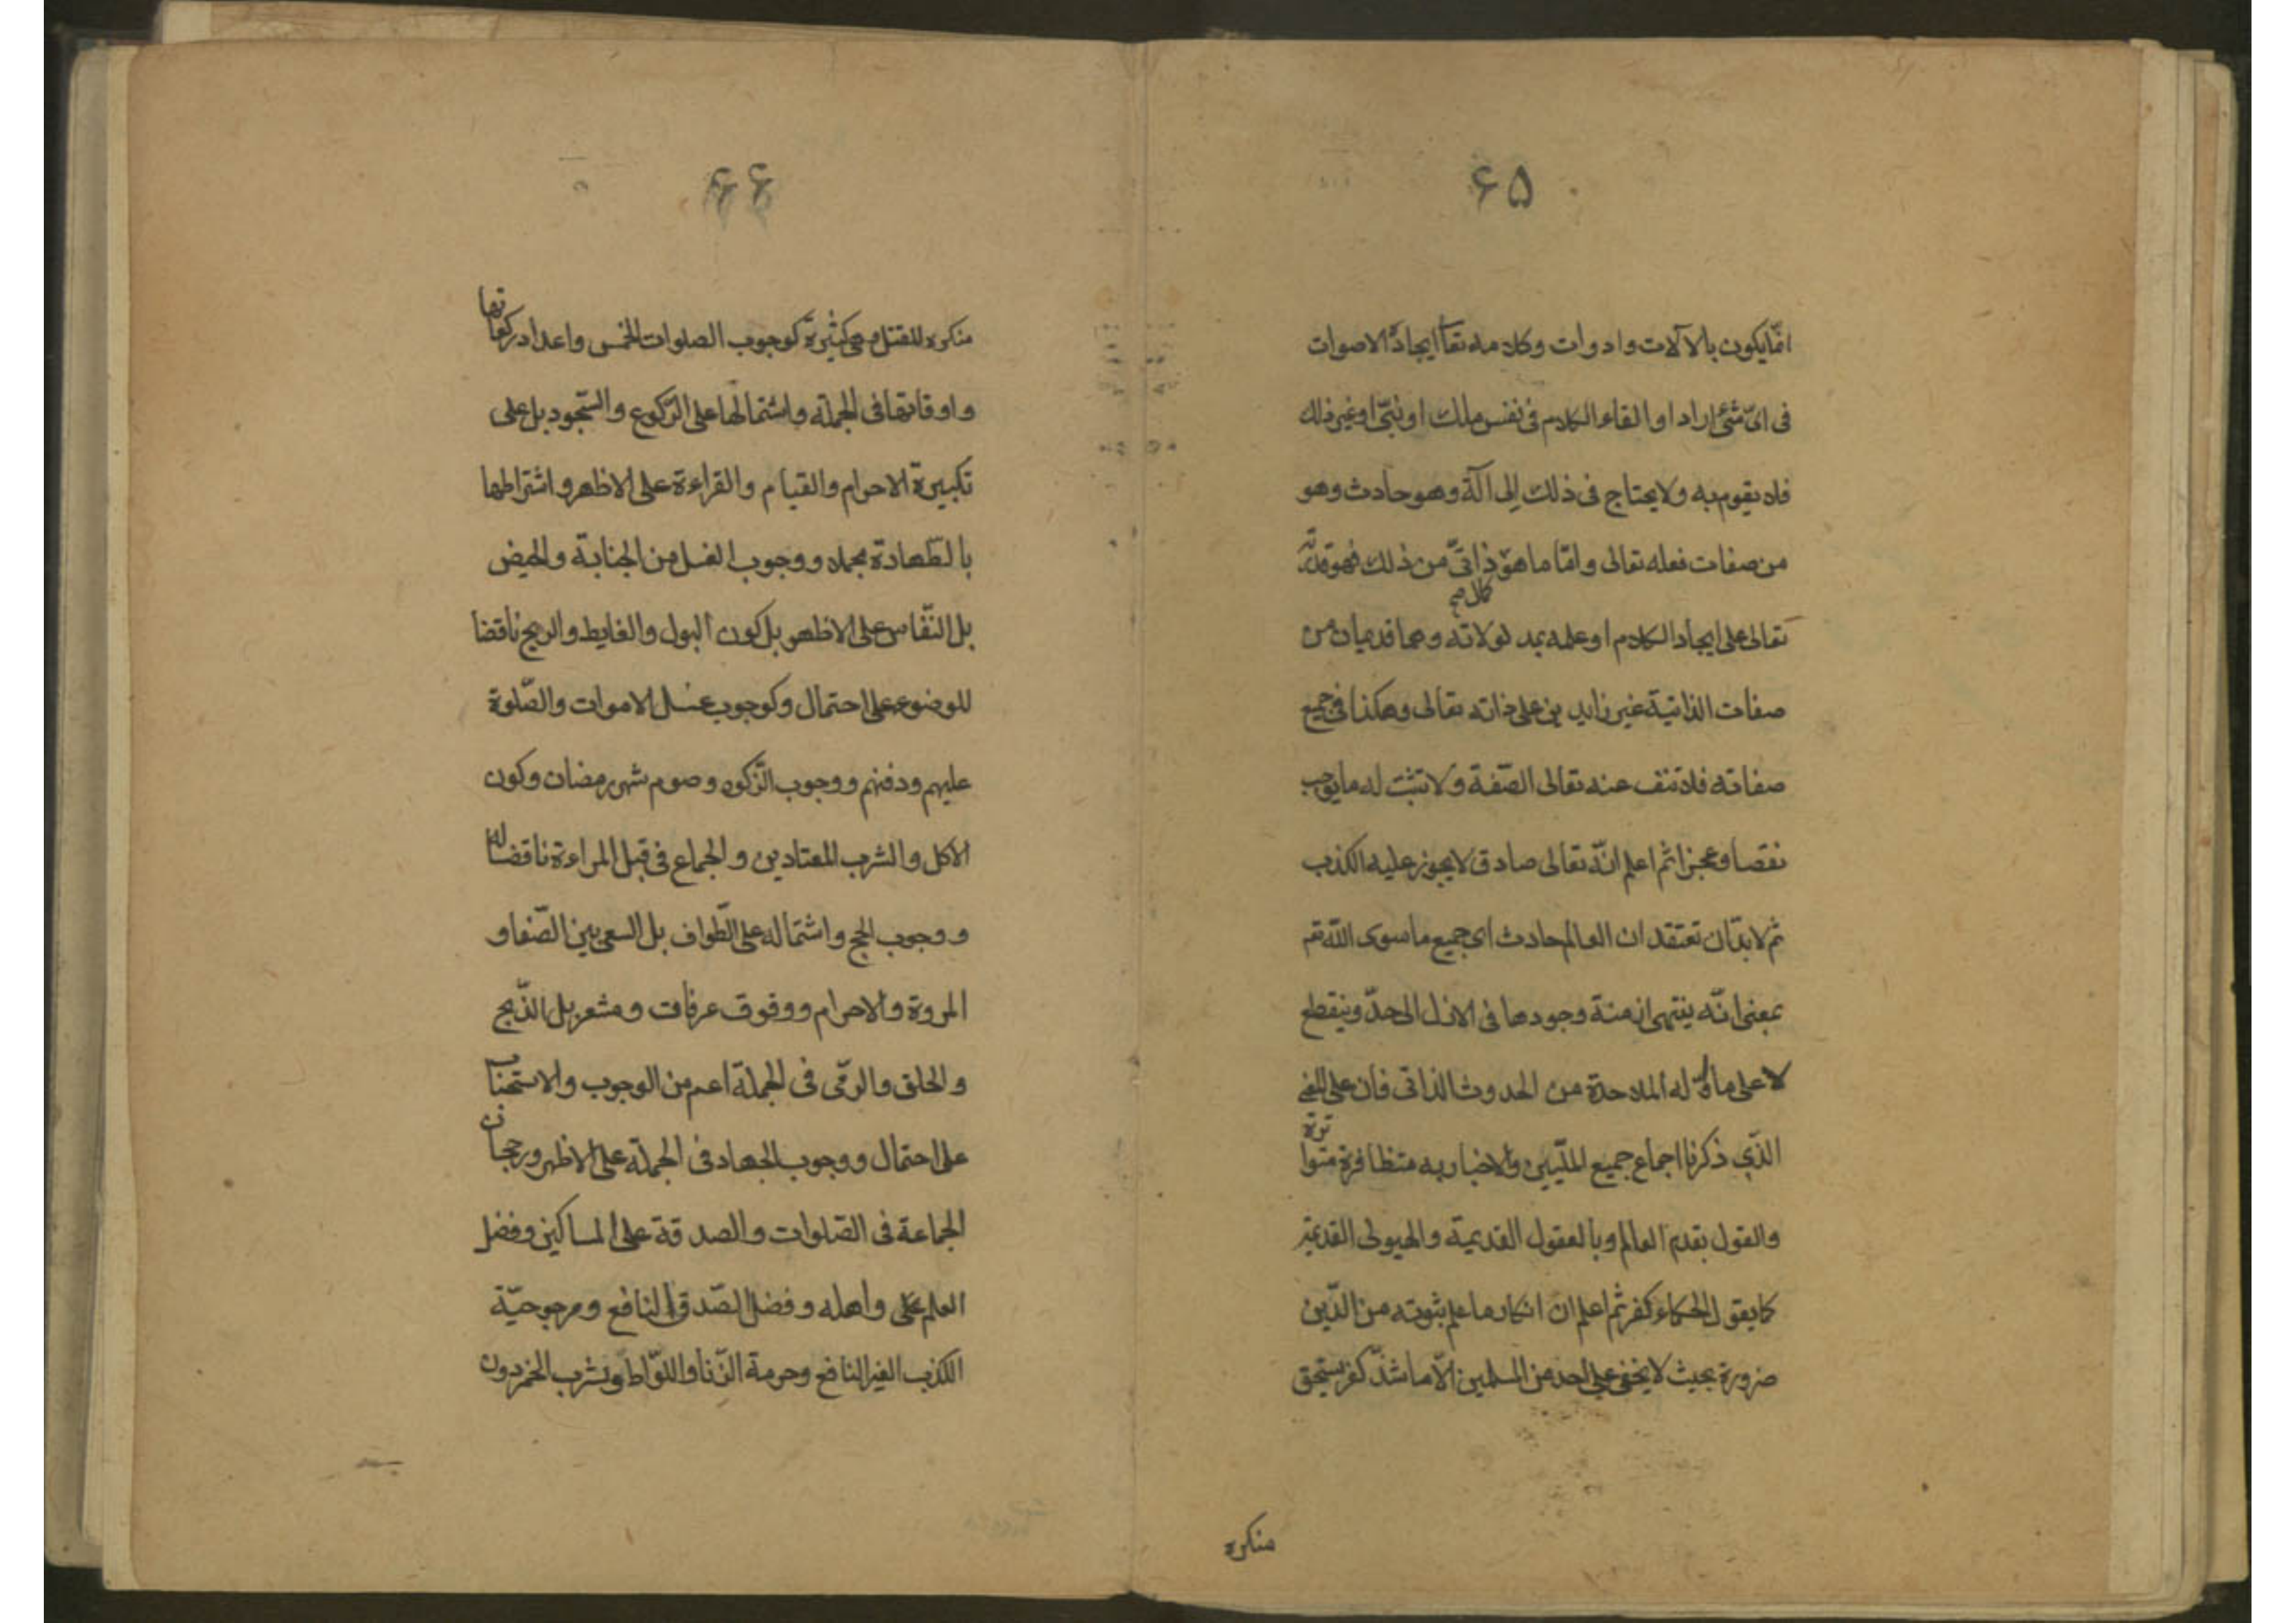 ۶۵
انّما يكون بالآلات وادوات وكلامه تعا ايجاد الاصوات
فى اىّ شئ اراد او القاء الكلام فى نفس ملك او نبىّ او غير ذلك
فلا يقوم به ولا يحتاج فى ذلك الى آلة وهو حادث وهو
من صفات فعله تعالى وامّا ما هو ذاتىّ من ذلك فهو قدرته
تعالى على ايجاد الكلام او علمه بمدلولاته وهما قديمان من
كلا صح
صفات الذاتية غير زايدين على ذاته تعالى وهكذا فى جميع
صفاته فلا تنف عنه تعالى الصّفة ولا تثبت له ما يوجب
نقصا وعجزا ثم اعلم انّه تعالى صادق لا يجوز عليه الكذب
ثم لا بدّ ان تعتقد ان العالم حادث اى جميع ما سوى اللّه تم
بمعنى انّه ينتهى ازمنة وجودها فى الازل الى حدّ وينقطع
لا على ما اوّله الملاحدة من الحدوث الذاتى فان على المعنى
الذّى ذكرنا اجماع جميع الملّيين والاخبار به متظافرة متواترة
والقول بقدم العالم وبالعقول القديمة والهيولى القديمة
كما يقول الحكماء كفر ثم اعلم ان انكار ما علم بثبوته من الدّين
ضرورة بحيث لا يخفى على احد من المسلمين الّا ما شذّ كفر يستحق
منكره
۶۶
منكره للقتل وهى كثيرة كوجوب الصلوات الخمس واعداد ركعاتها
واوقاتها فى الجملة واشتمالها على الرّكوع والسّجود بل على
تكبيرة الاحرام والقيام والقراءة على الاظهر واشتراطها
بالطّهارة مجملا ووجوب الغسل من الجنابة والحيض
بل النّفاس على الاظهر بل كون البول والغايط والريح ناقضا
للوضوء على احتمال وكوجوب غسل الاموات والصّلوة
عليهم ودفنهم ووجوب الزّكوة وصوم شهر رمضان وكون
الاكل والشرب المعتادين والجماع فى قبل المراءة ناقضا له
ووجوب الحج واشتماله على الطّواف بل السعى بين الصّفا و
المروة والاحرام ووقوف عرفات ومشعر بل الذّبح
والحلق والرمّى فى الجملة اعم من الوجوب والاستحباب
على احتمال ووجوب الجهاد فى الجملة على الاظهر ورجحان
الجماعة فى الصّلوات والصدقة على المساكين وفضل
العلم على واهله وفضل الصّدق النافع ومرجوحيّة
الكذب الغير النافع وحرمة الزّنا واللوّاط وشرب الخمر دون